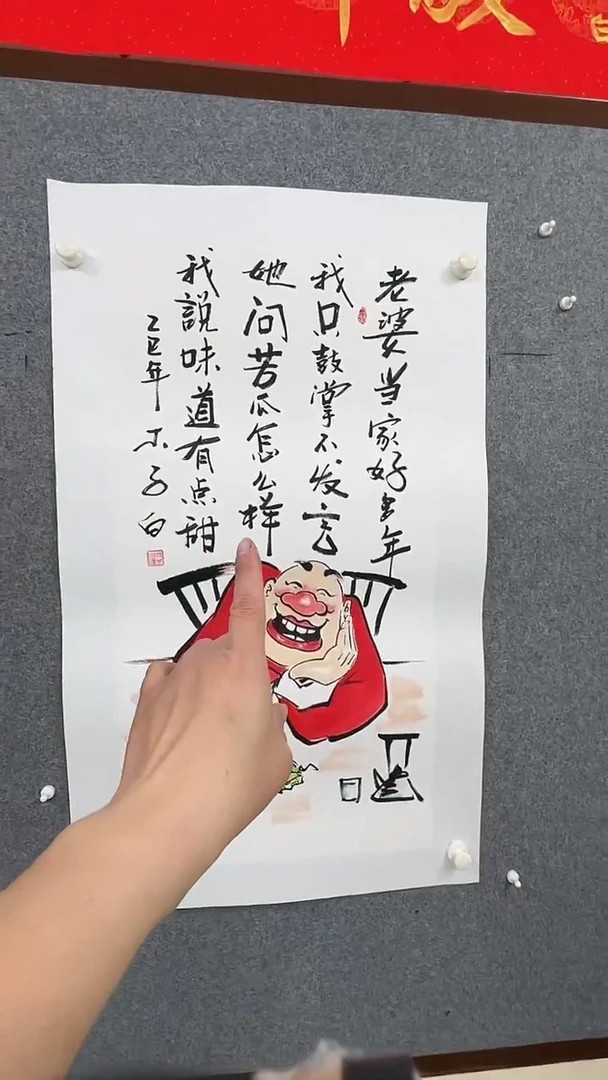 老婆当家好多年
我只鼓掌不发言
她问苦瓜怎么样
我說味道有点甜
乙巳年木子白